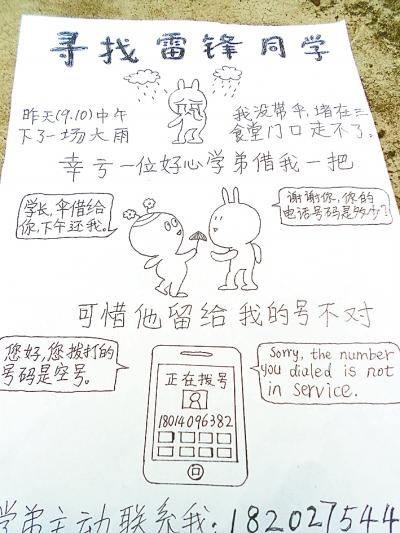 寻找雷锋同学
昨天(9.10)中午
下了一场大雨
我没带伞,堵在三
食堂门口走不了。
幸亏一位好心学弟借我一把
学长,伞借给
你,下午还我。
谢谢你,你的
电话号码是多少?
可惜他留给我的号不对
您好,您拨打的
号码是空号。
正在拨号
18014096382
Sorry, the number
you dialed is not
in service.
学弟主动联系我:182027544